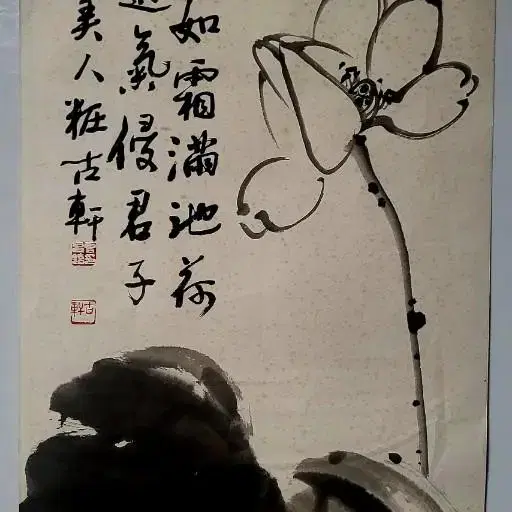 如霜滿池荷
氣侵君子
美人粧古軒
古軒